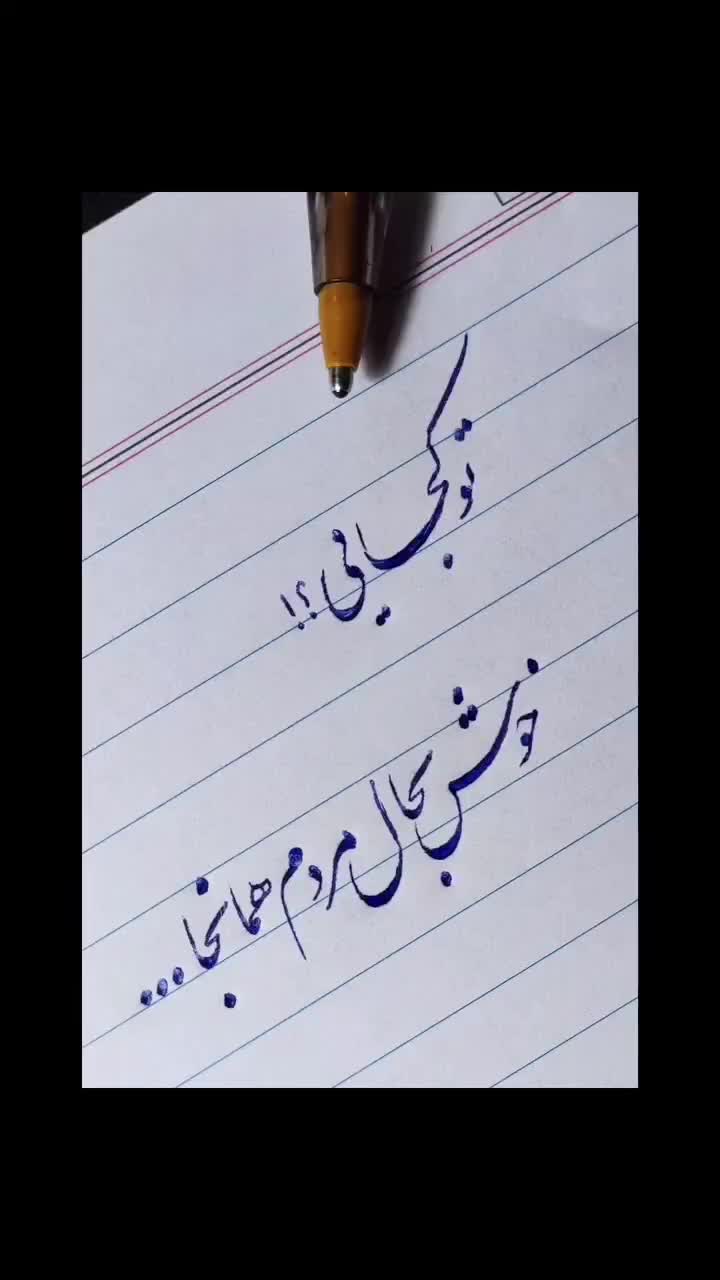 تو کجایی؟!
خوش بحال مردم همانجا...